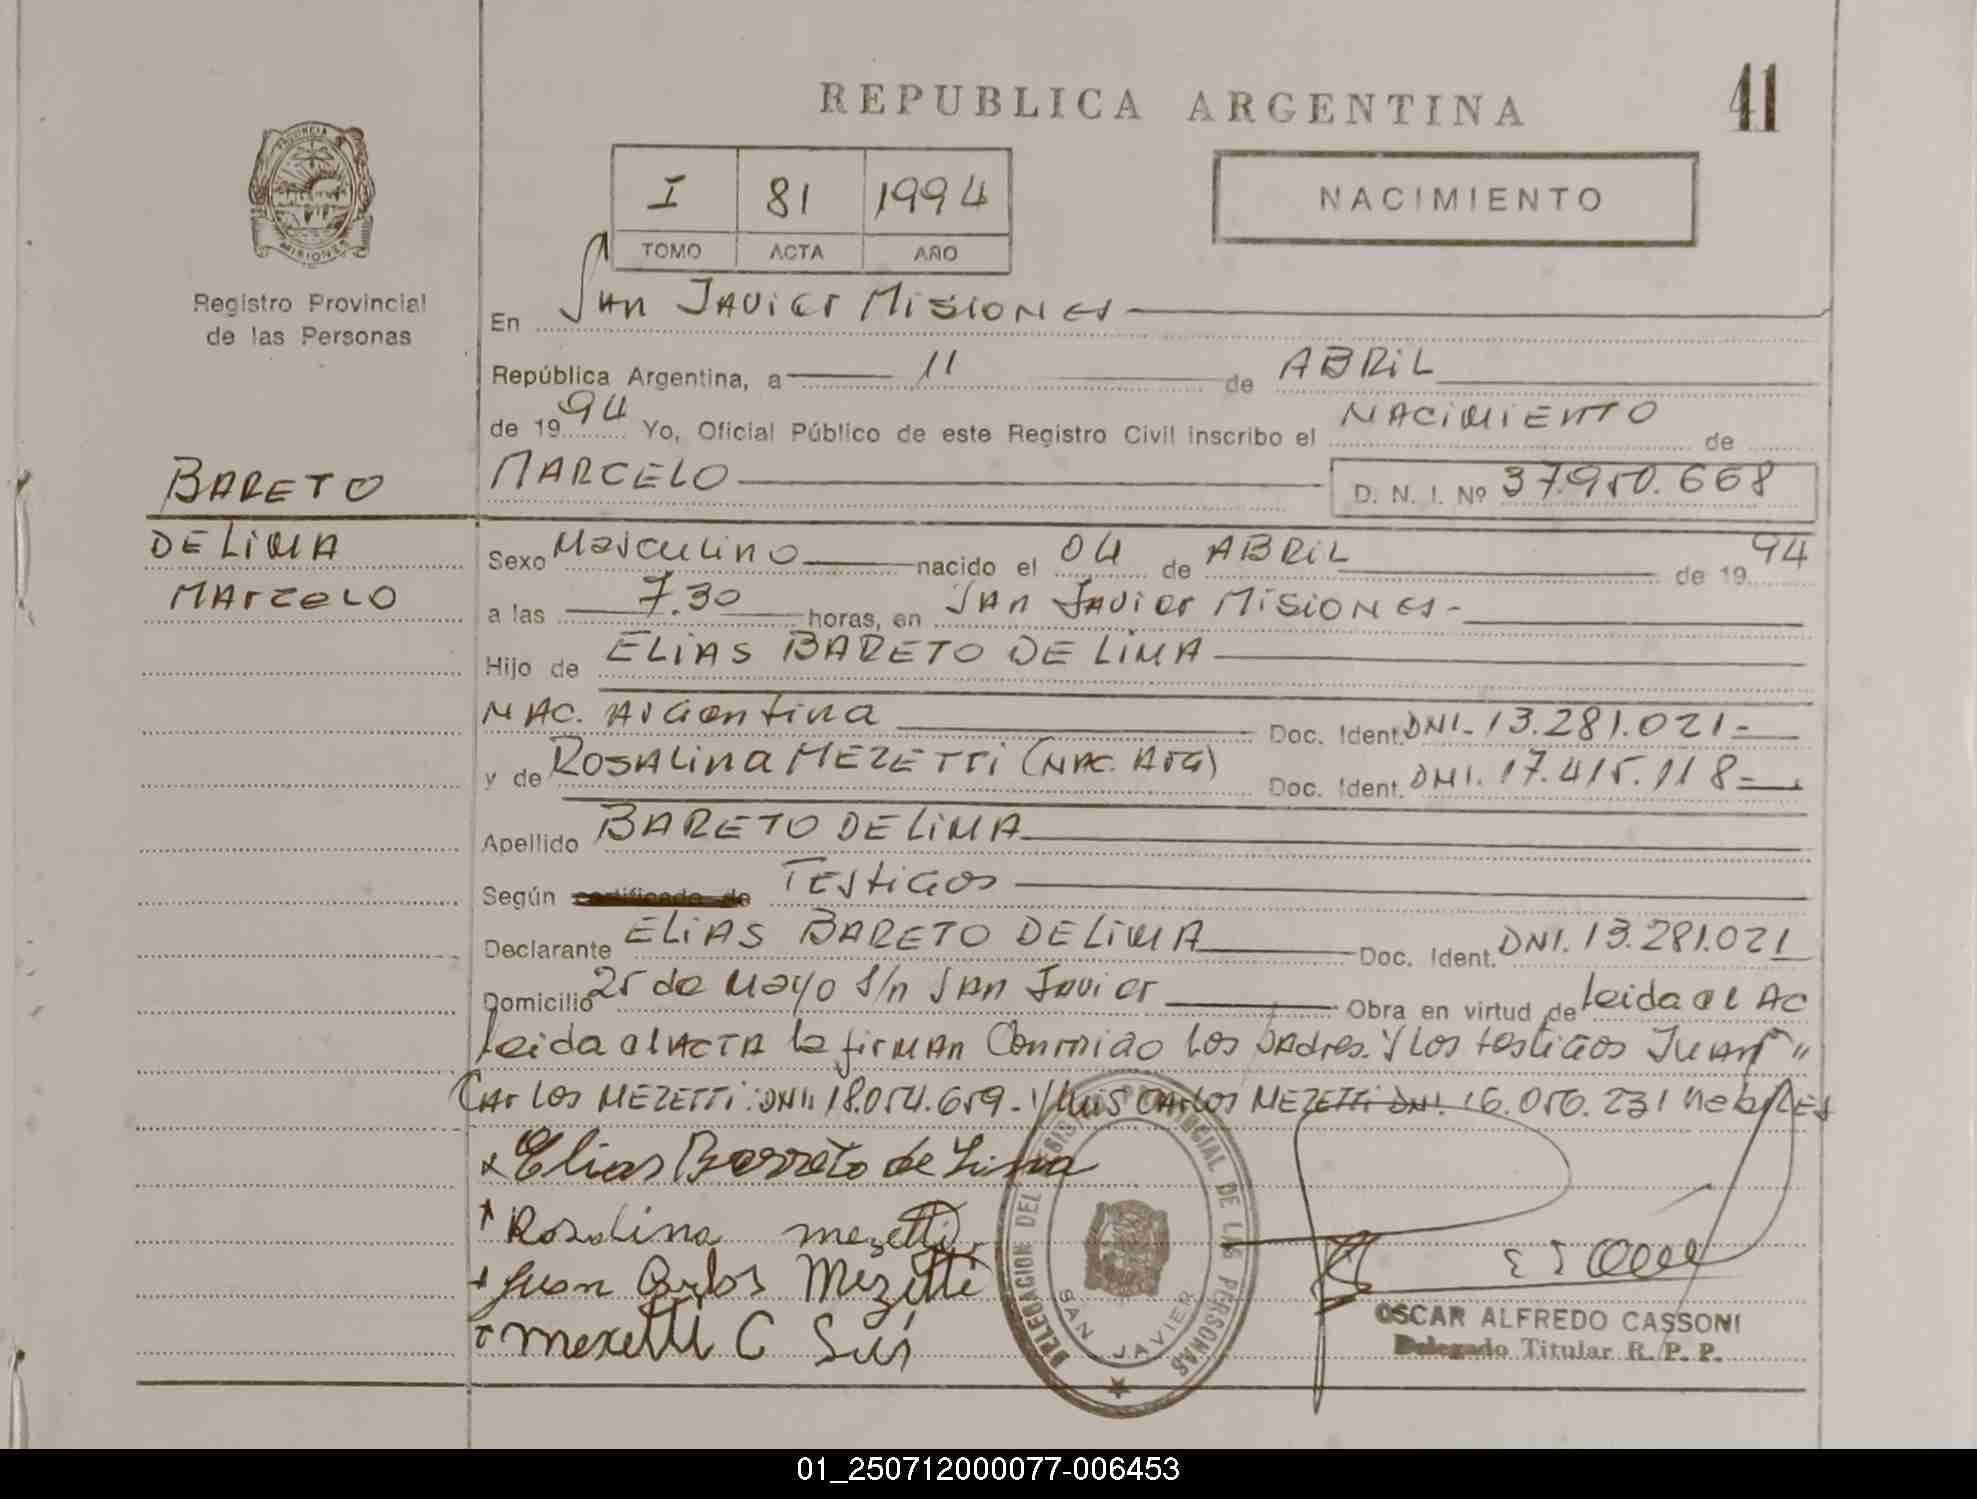 REPUBLICA ARGENTINA
41
PROVINCIA
MISIONES
Registro Provincial
de las Personas
I 81 1994
TOMO ACTA AÑO
NACIMIENTO
En SAN JAVIER MISIONES
República Argentina, a 11 de ABRIL
de 1994 Yo, Oficial Público de este Registro Civil inscribo el NACIMIENTO de
MARCELO D. N. I. Nº 37.950.668
BARETO
DE LIMA
MARCELO
Sexo Masculino nacido el 04 de ABRIL de 1994
a las 7.30 horas, en SAN JAVIER MISIONES-
Hijo de ELIAS BARETO DE LIMA
NAC. Argentina Doc. Ident. DNI. 13.281.021-
y de ROSALINA MEZETTI (NAC. ARG) Doc. Ident. DNI. 17.415.118=
Apellido BARETO DE LIMA
Según certificado de TESTIGOS
Declarante ELIAS BARETO DE LIMA Doc. Ident. DNI. 13.281.021
Domicilio 25 de Mayo S/n SAN Javier Obra en virtud de leida el AC
leida el ACTA la firman Conmigo los padres. Y los testigos JUAN "
CARLOS MEZETTI: DNI: 18.054.659- Y LUIS CARLOS MEZETTI DNI. 16.056.231
x Elias Barreto de Lima
Rosalina mezetti
Juan Carlos Mezetti
mezetti C
DELEGACION DEL REGISTRO PROVINCIAL DE LAS PERSONAS
SAN JAVIER
OSCAR ALFREDO CASSONI
Delegado Titular R. P. P.
01_250712000077-006453